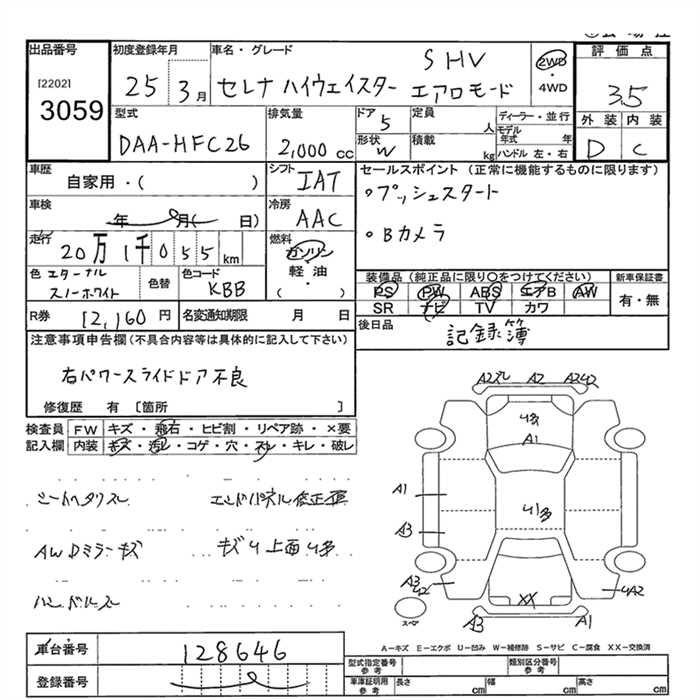 出品番号
[2202]
3059
初度登録年月
25 3月
車名・グレード
SHV
セレナ ハイウェイスター エアロモード
2WD
・
4WD
評価点
3.5
外装 内装
D C
型式
DAA-HFC26
排気量
2,000 cc
ドア 5
形状 W
定員 人
積載 kg
ディーラー・並行
モデル年式 年
ハンドル 左・右
車歴
自家用・( )
シフト
IAT
車検
年 月( 日)
冷房
AAC
走行
20万1千055km
燃料
ガソリン
・
軽油
・
( )
色 エターナル
スノーホワイト
色替
色コード
KBB
R券 12,160円
名変通知期限 月 日
セールスポイント (正常に機能するものに限ります)
○プッシュスタート
○Bカメラ
装備品 (純正品に限り○をつけてください)
PS PW ABS エアB AW
SR ナビ TV カワ
新車保証書
有・無
後日品
記録簿
注意事項申告欄(不具合内容等は具体的に記入して下さい)
右パワースライドドア不良
修復歴 有 [箇所 ]
検査員
記入欄
FW キズ・飛石・ヒビ割・リペア跡・×要
内装 キズ・汚レ・コゲ・穴・スレ・キレ・破レ
シートヘタリスレ
エンドパネル修正歪
AWDミラーキズ
キズU上面U多
ハンドルスレ
A2 A242
U多
A1
A1
U多
A3
A3
U2
UA2
XX
スペア
A3 A1
A-キズ E-エクボ U-凹み W-補修跡 S-サビ C-腐食 XX-交換済
車台番号 128646
登録番号
型式指定番号
参考
類別区分番号
参考
車庫証明用
参考
長さ cm
幅 cm
高さ cm